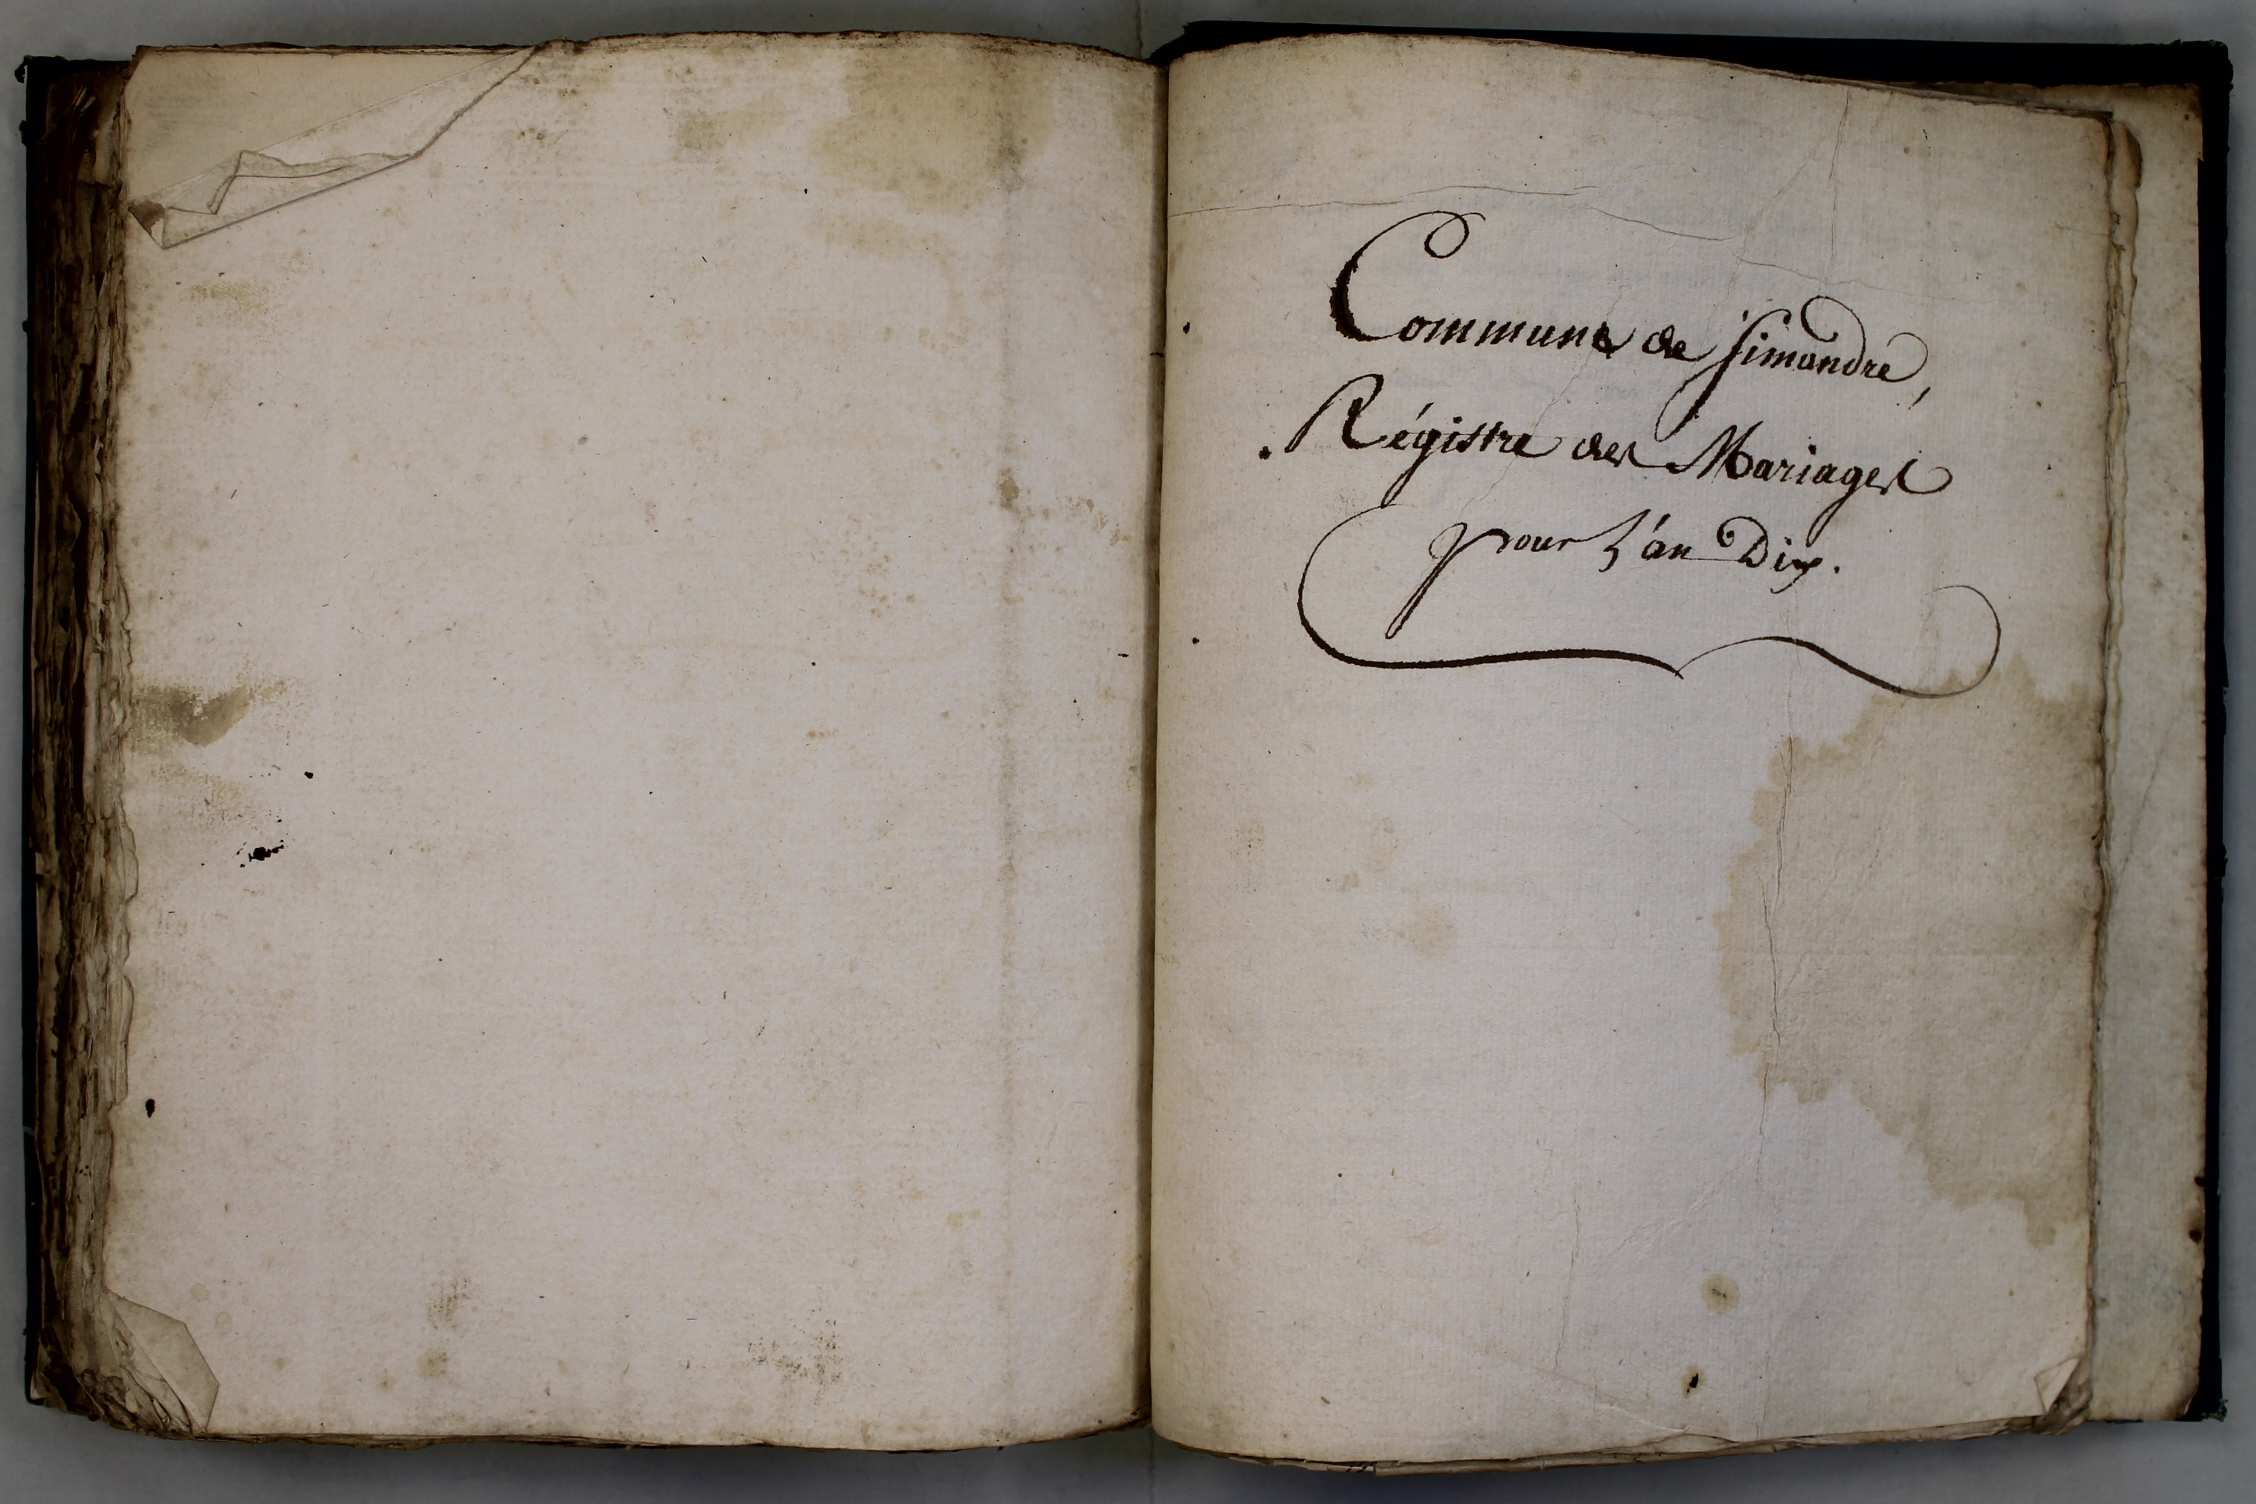 Commune de Simandre,
Régistre des Mariages
pour L'an Dix.